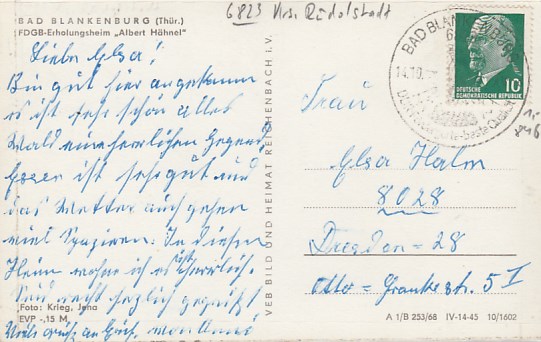 BAD BLANKENBURG (Thür.)
FDGB-Erholungsheim „Albert Hähnel"
6823 Krs. Rudolstadt
Liebe Elsa!
Bin gut hier angekommen
es ist sehr schön alles
Wald eine herrlichen Gegend
Essen ist sehr gut und
das Wetter auch gehen
viel Spazieren. In diesen
Heim wohne ich es ist herrlich.
Seid recht herzlich gegrüßt
Foto: Krieg, Jena
EVP -,15 M
VEB BILD UND HEIMAT REICHENBACH i. V.
BAD BLANKENBURG
14.10.
10
DEUTSCHE
DEMOKRATISCHE REPUBLIK
Frau
Elsa Halm
8028
Dresden - 28
Otto - str. 5 I
A 1/B 253/68 IV-14-45 10/1602